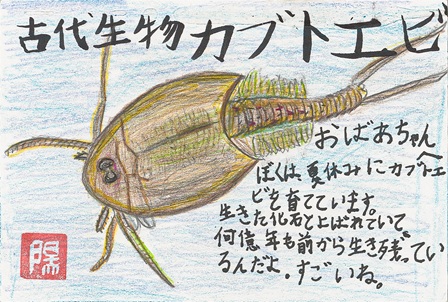 古代生物カブトエビ
おばあちゃんへ
ぼくは、夏休みにカブトエ
ビを育てています。
生きた化石とよばれていて
何億年も前から生き残ってい
るんだよ。すごいね。
陽